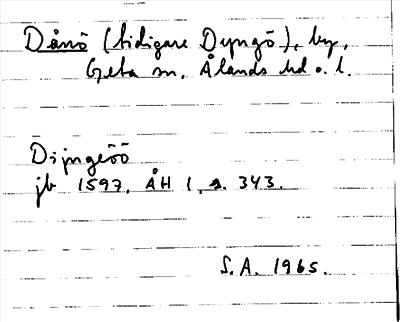 Dånö (tidigare Dyngö), by,
Geta sn, Ålands hd o. l.
Dijngeöö
jb 1597. ÅH I, s. 343.
S.A. 1965.